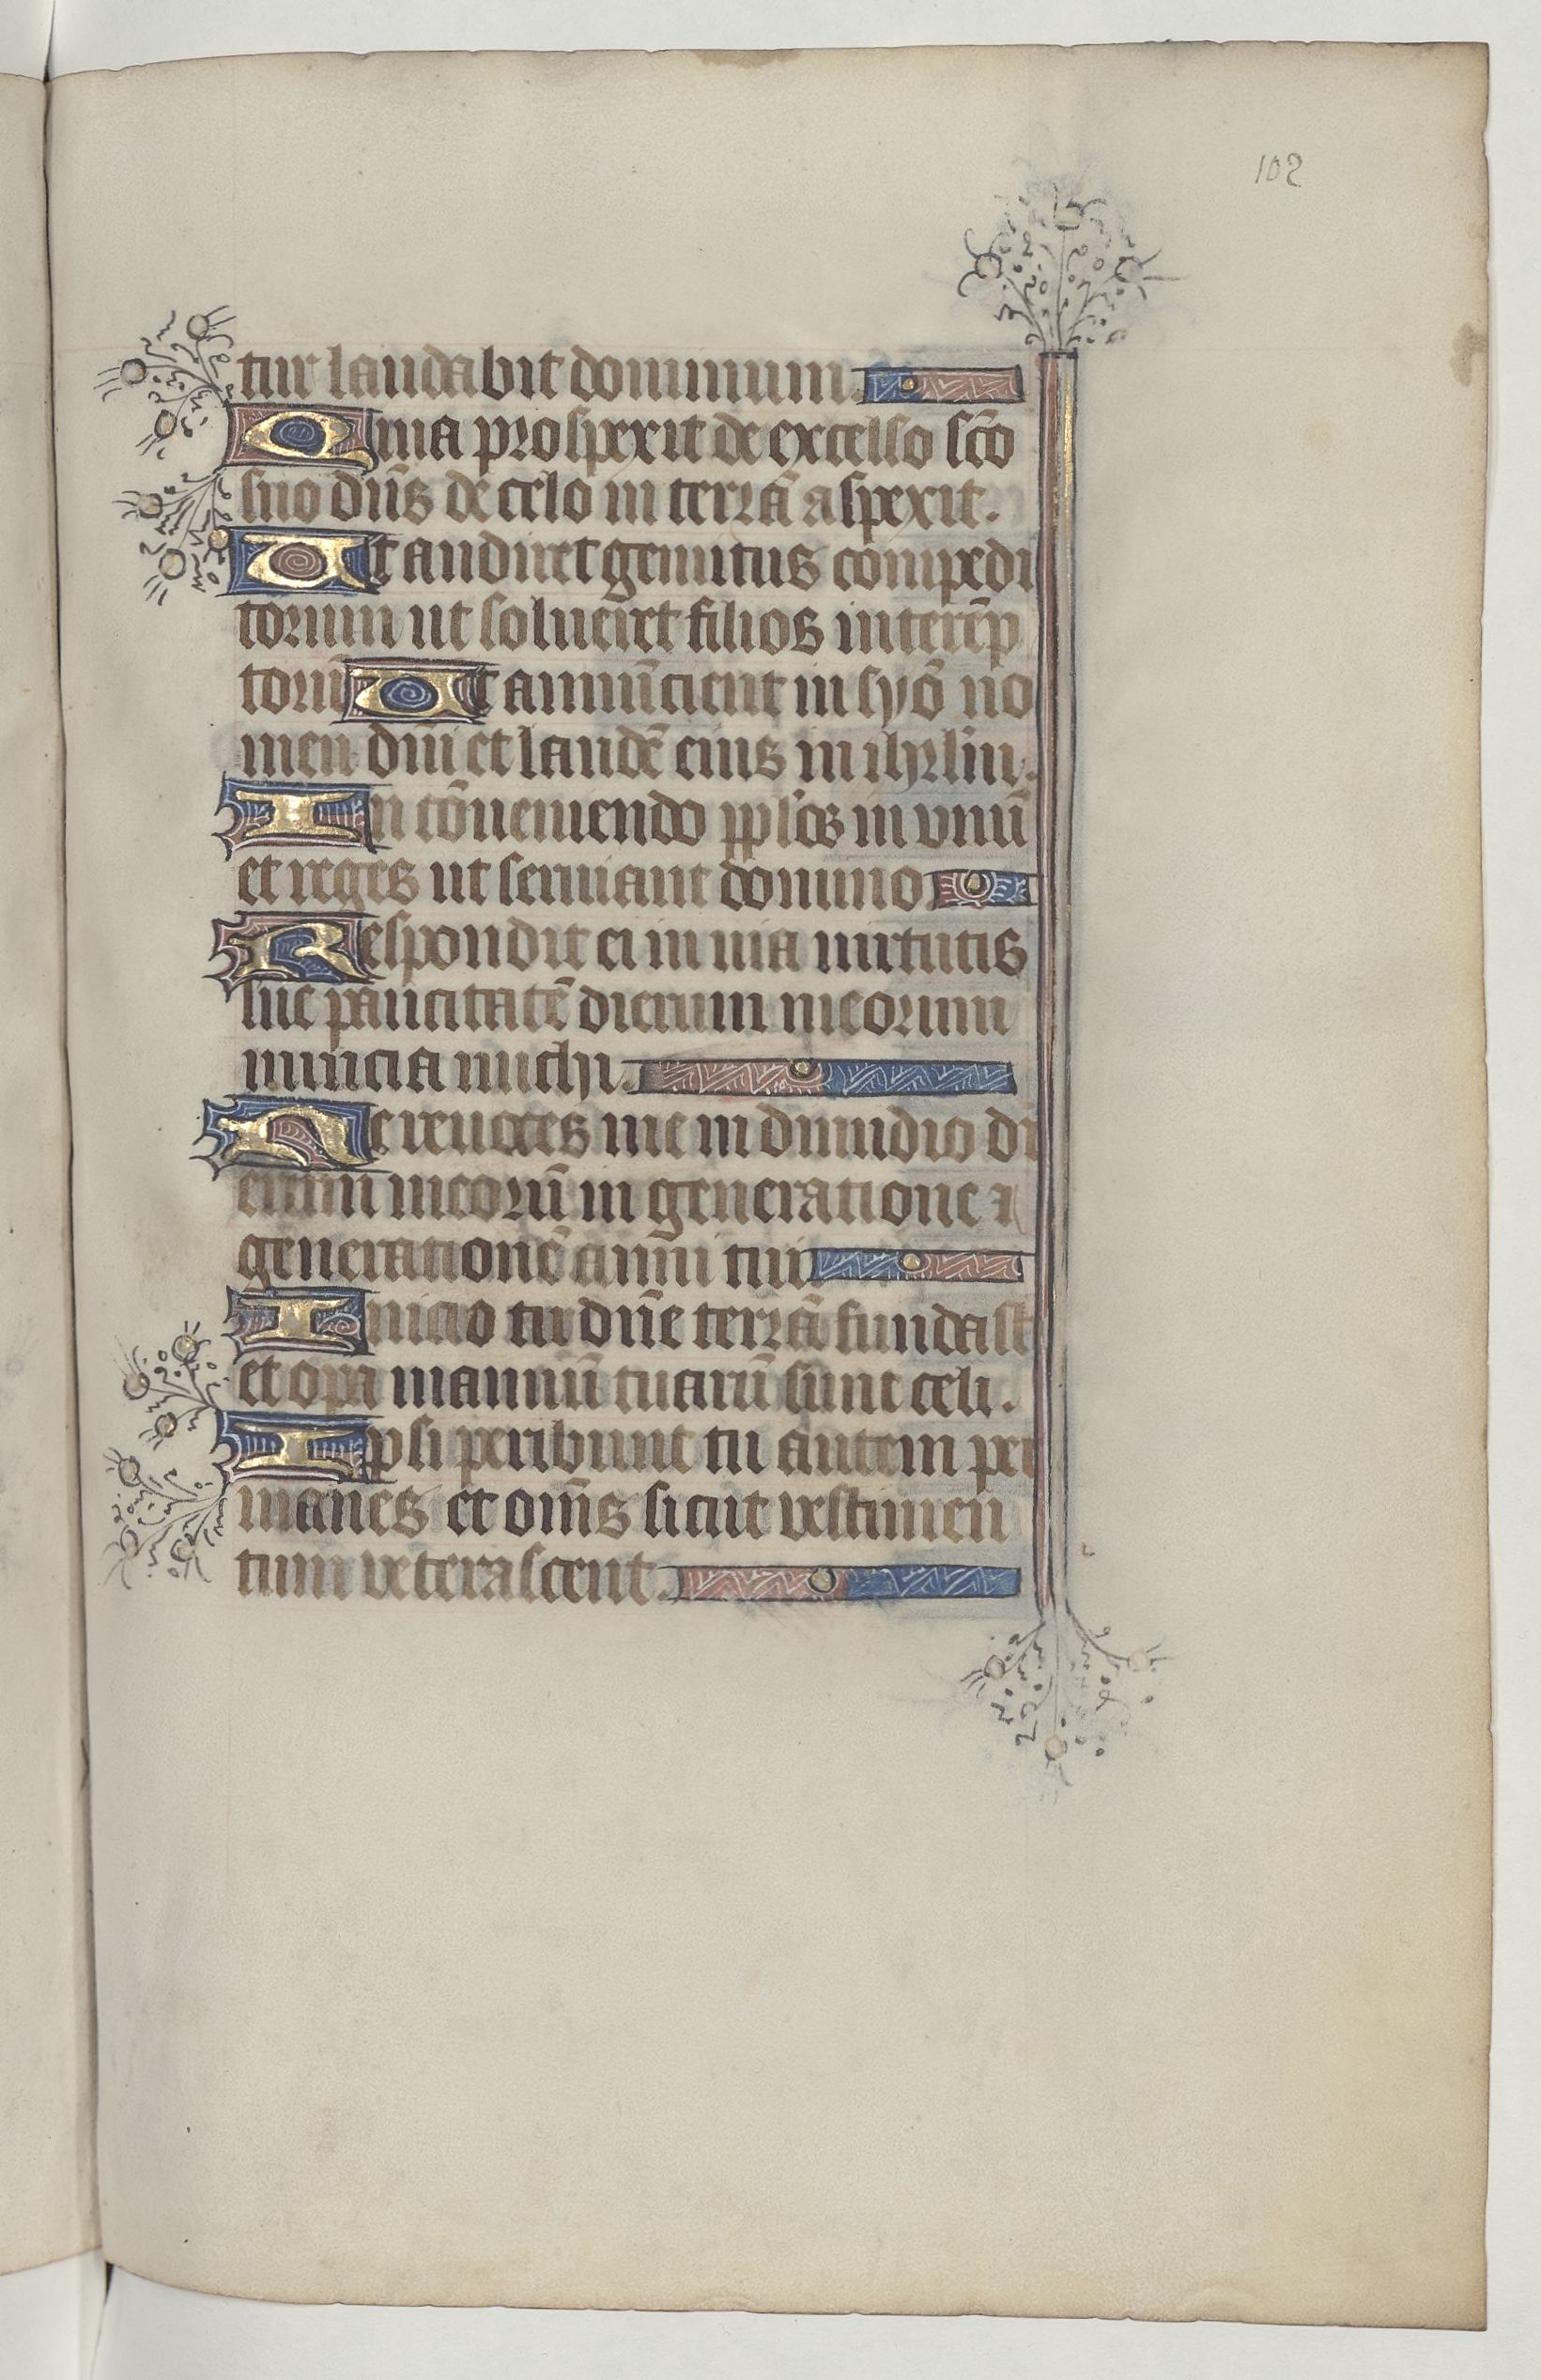 102
tur laudabit dominum.
Quia prospexit de excelso sc̄o
suo dn̄s de celo in terrā aspexit.
Ut audiret gemitus compedi
torum ut solueret filios interēp
torū Ut annūcient in syō no
men dn̄i et laudē eius in ihrl̄m.
In cōueniendo ppl̄os in vnū
et reges ut seruiant domino
Respondit ei in uia uirtutis
sue paucitatē dierum meorum
nuncia michi.
Ne reuoces me in dimidio di
erum meorū in generatione ⁊
generationē anni tui
Inicio tu dn̄e terrā fundast
et opa manuū tuarū sunt celi.
Ipsi peribunt tu autem per
manes et om̄s sicut vestimen
tum veterascent.